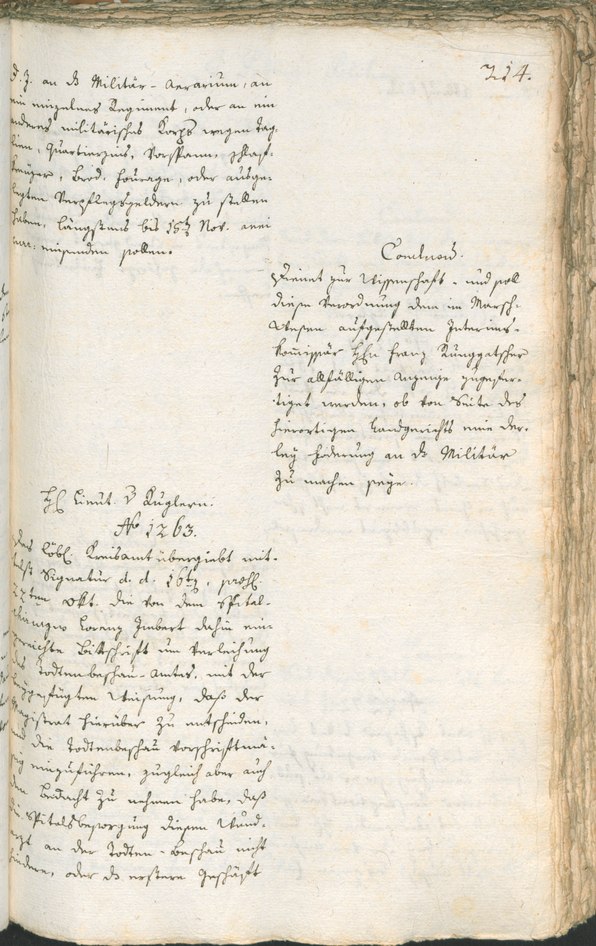 214.
d. J. an ds Militär-Aerarium, an
ein einzelnes Regiment, oder an ein
anderes militärisches Korps wegen Tag¬
lien, Quartierzins, Vorspann, Schlaf¬
kreuzer, Brod, Fourage, oder ausge¬
legten Verpflegsgeldern zu stellen
haben, längstens bis 15ten Nov. anni
curr: einsenden sollen.
Conclusum.
Dienet zur Wissenschaft - und soll
diese Verordnung dem im Marsch-
Wesen aufgestellten Interims-
Kommissär HEn Franz Runggatscher
zur allfälligen Anzeige zugefer¬
tiget werden, ob von Seite des
hierortigen Landgerichts eine der¬
ley Foderung an ds Militär
zu machen seye.
H Lieut. v Kuglern.
No 1263.
Das löbl. Kreisamt übergiebt mit¬
telst Signatur d. d. 16ten, praes.
27ten Okt. die von dem Spital-
Chirurgus Lorenz Imbert dahin ein¬
gereichte Bittschrift um Verleihung
des Todtenbeschau-Amtes, mit der
beygefügten Weisung, daß der
Magistrat hierüber zu entscheiden,
und die Todtenbeschau vorschriftmä¬
ßig einzuführen, zugleich aber auch
den Bedacht zu nehmen habe, daß
die Spitalsbesorgung diesen Wund¬
arzt an der Todten-Beschau nicht
hindere, oder ds erstere Geschäft